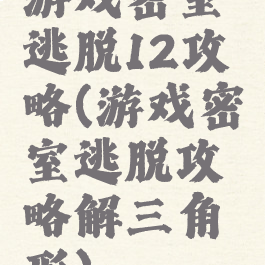 游戏密室
逃脱12攻
略(游戏密
室逃脱攻
略解三角
形)